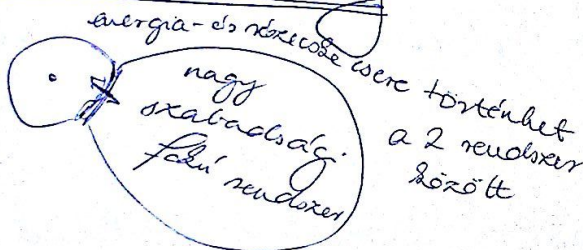 energia- és részecske csere történhet
a 2 rendszer
között
nagy
szabadsági
fokú rendszer